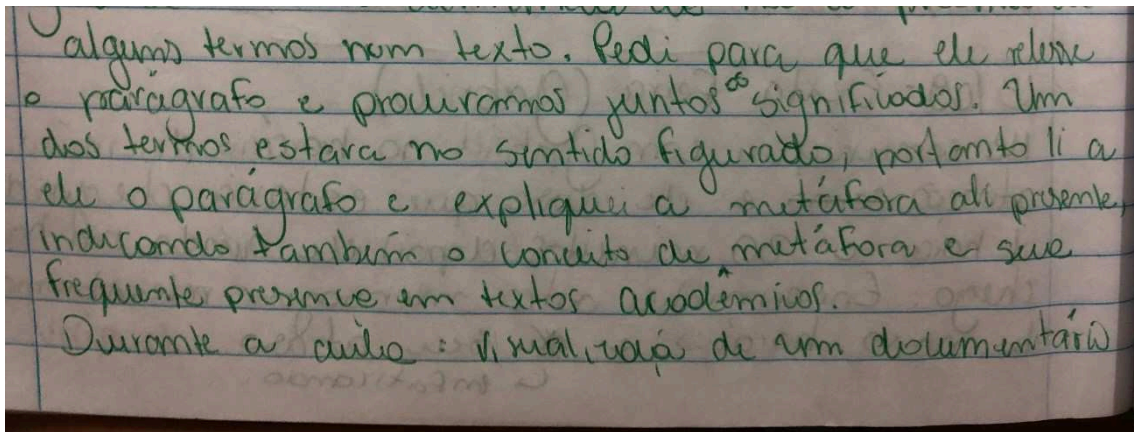 alguns termos num texto. Pedi para que ele relesse
o parágrafo e procuramos juntos os significados. Um
dos termos estava no sentido figurado, portanto li a
ele o parágrafo e expliquei a metáfora ali presente,
indicando também o conceito de metáfora e sua
frequente presença em textos acadêmicos.
Durante a aula: visualização de um documentário